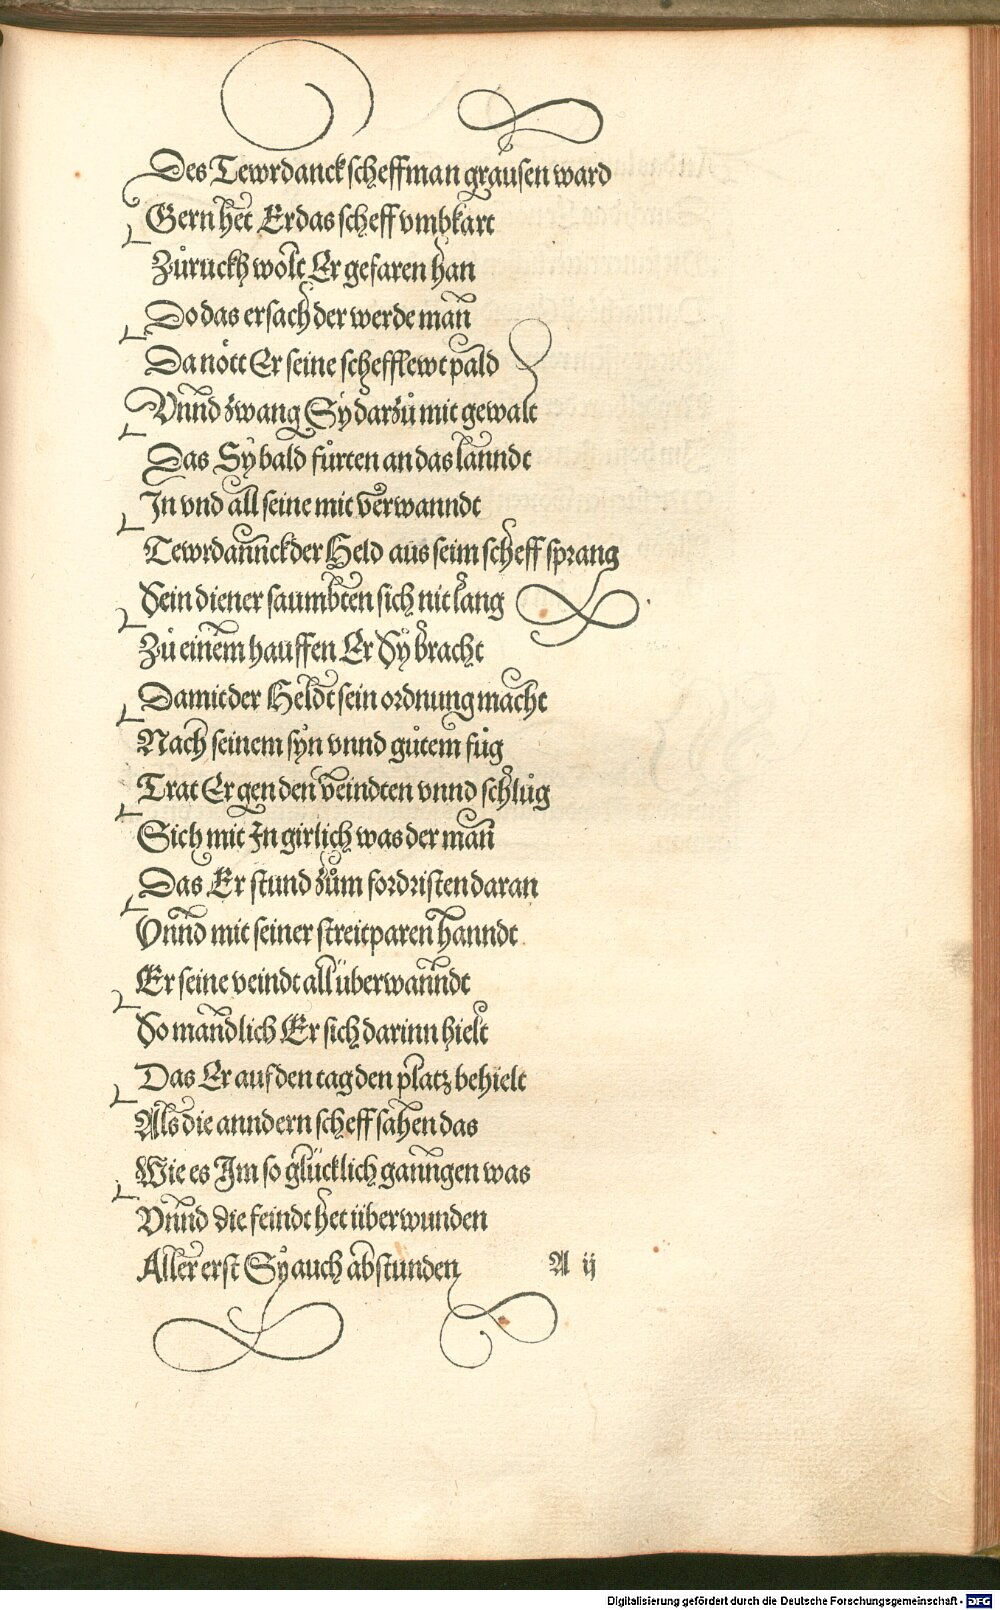 Des Tewrdanck scheffman grausen ward
Gern het Er das scheff vmbkart
Zůruckh wolt Er gefaren han
Do das ersach der werde man
Da nött Er seine schefflewt pald
Vnnd zwang Sy darzů mit gewalt
Das Sy bald fůrten an das lanndt
In vnd all seine mit verwanndt
Tewrdannck der Held aus seim scheff sprang
Sein diener saumbten sich nit lang
Zů einem hauffen Er Sy bracht
Damit der Heldt sein ordnung macht
Nach seinem syn vnnd gůtem fůg
Trat Er gen den veindten vnnd schlůg
Sich mit In girlich was der man
Das Er stund zům fordristen daran
Vnnd mit seiner streitparen hanndt
Er seine veindt all überwanndt
So mandlich Er sich darinn hielt
Das Er auf den tag den platz behielt
Als die anndern scheff sahen das
Wie es Im so glücklich ganngen was
Vnnd die feindt het überwunden
Aller erst Sy auch abstunden
A ij
Digitalisierung gefördert durch die Deutsche Forschungsgemeinschaft - DFG